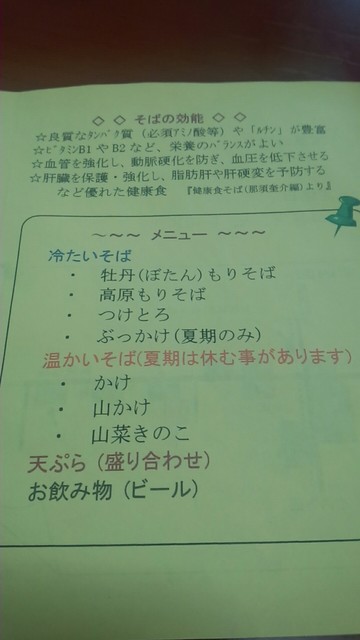 ◇ ◇ そばの効能 ◇ ◇
☆良質なﾀﾝﾊﾟｸ質（必須ｱﾐﾉ酸等）や「ﾙﾁﾝ」が豊富
☆ﾋﾞﾀﾐﾝB1やB2など、栄養のﾊﾞﾗﾝｽがよい
☆血管を強化し、動脈硬化を防ぎ、血圧を低下させる
☆肝臓を保護・強化し、脂肪肝や肝硬変を予防する
など優れた健康食 『健康食そば（那須奎介編）より』
～～～ メニュー ～～～
冷たいそば
・ 牡丹（ぼたん）もりそば
・ 高原もりそば
・ つけとろ
・ ぶっかけ（夏期のみ）
温かいそば（夏期は休む事があります）
・ かけ
・ 山かけ
・ 山菜きのこ
天ぷら（盛り合わせ）
お飲み物（ビール）